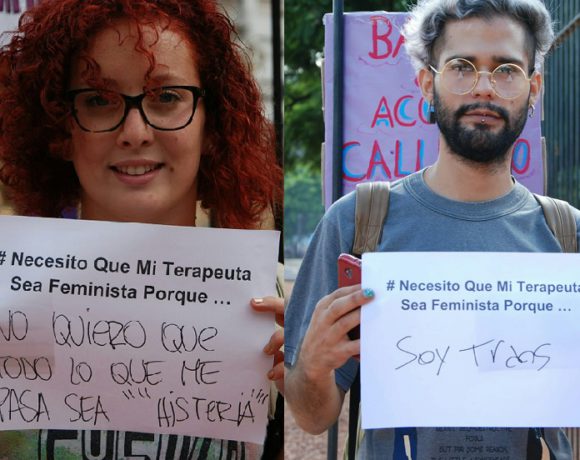 # Necesito Que Mi Terapeuta
Sea Feminista Porque ...
NO QUIERO QUE
TODO LO QUE ME
PASA SEA "" HISTERIA ""
BA
ACO
CALL O
# Necesito Que Mi Terapeuta
Sea Feminista Porque ...
Soy Trans
FOOLS
BUT FOR SOME REASON,